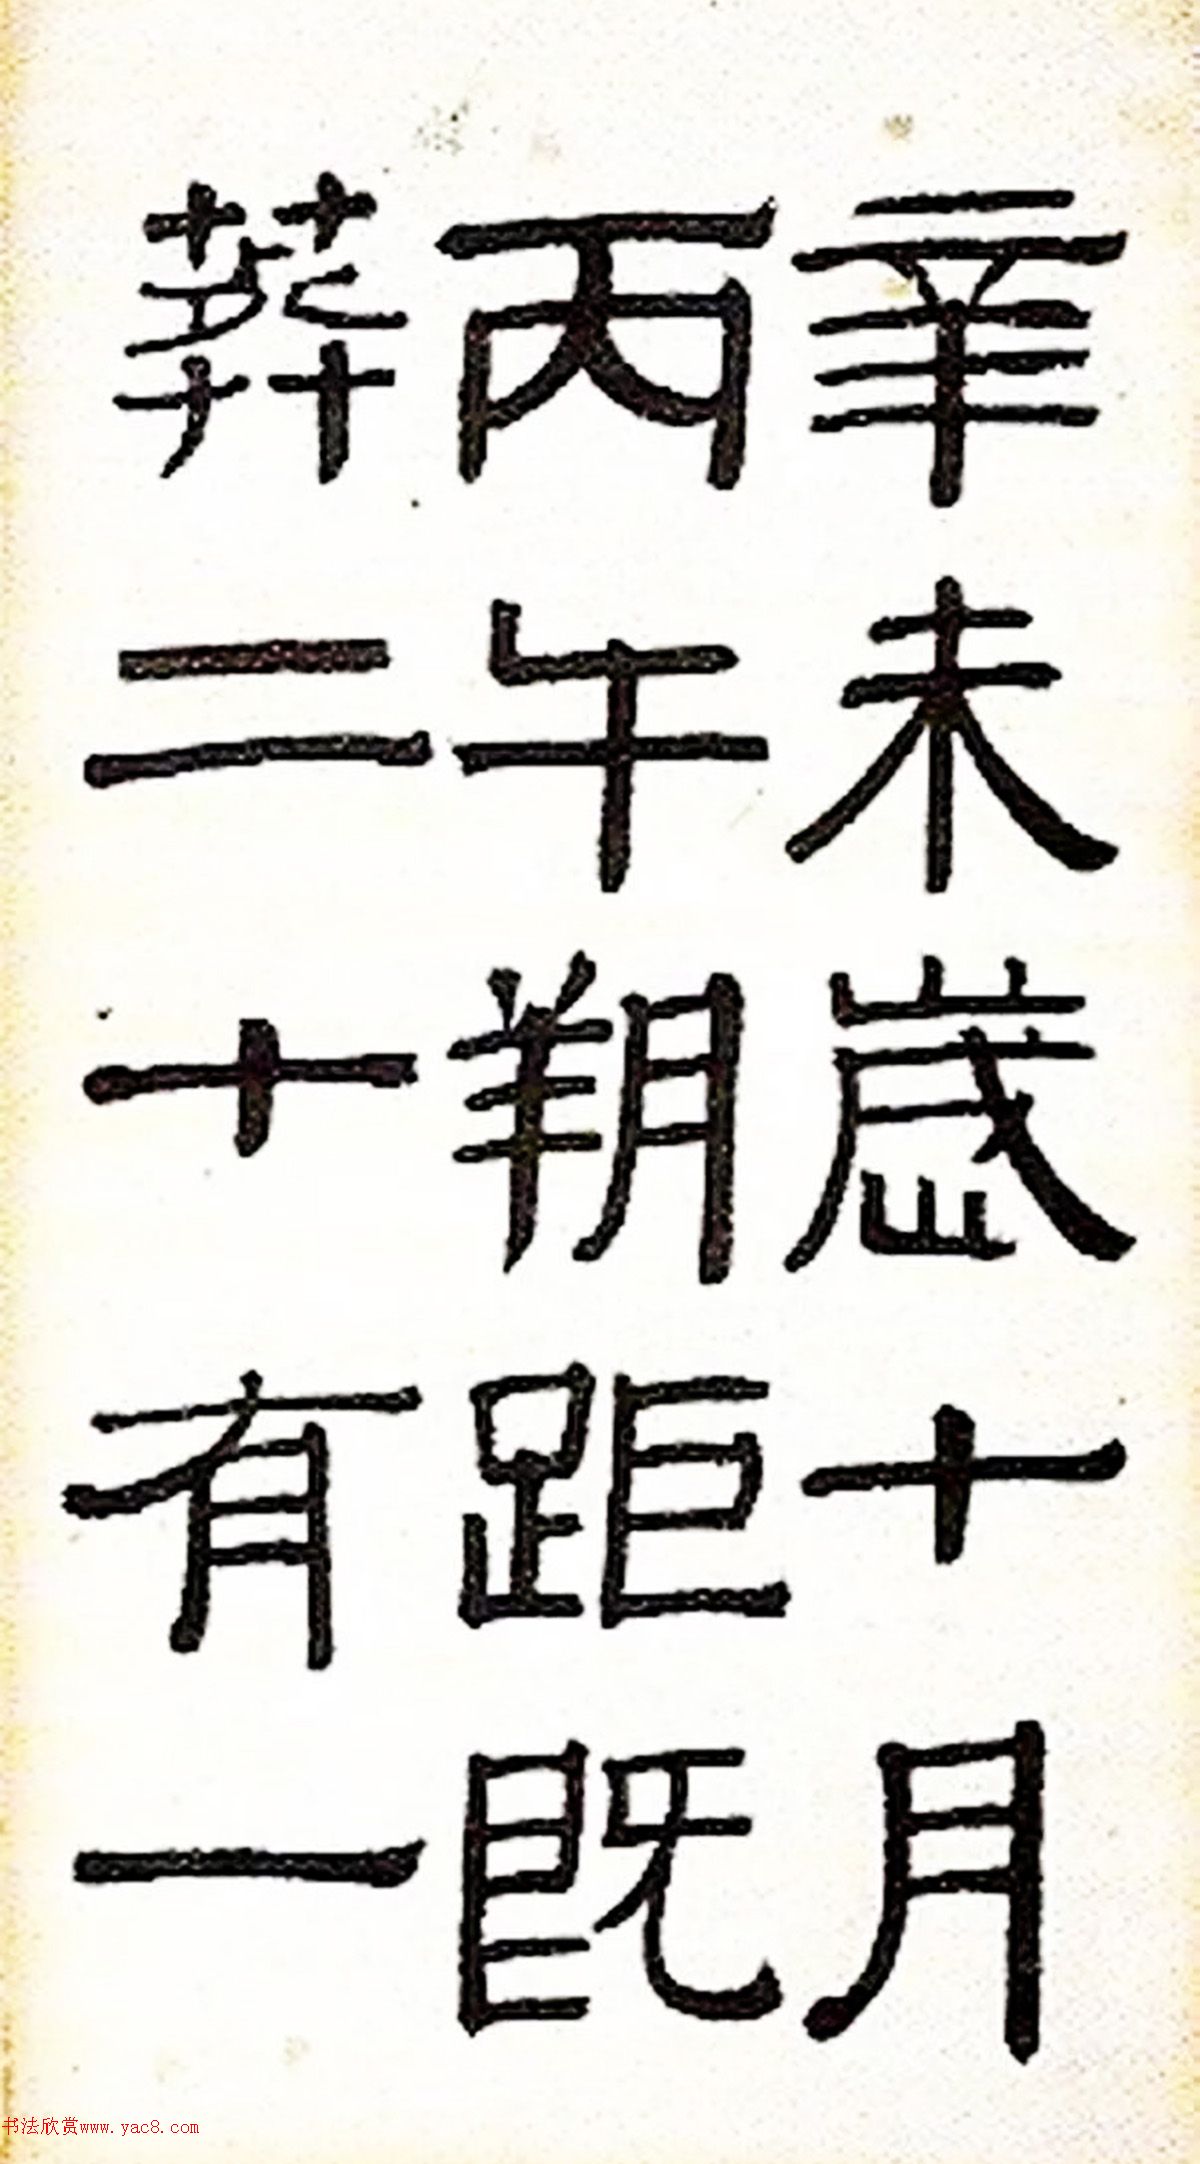 辛未歲十月
丙午朔距既
葬二十有一
书法欣赏www.yac8.com